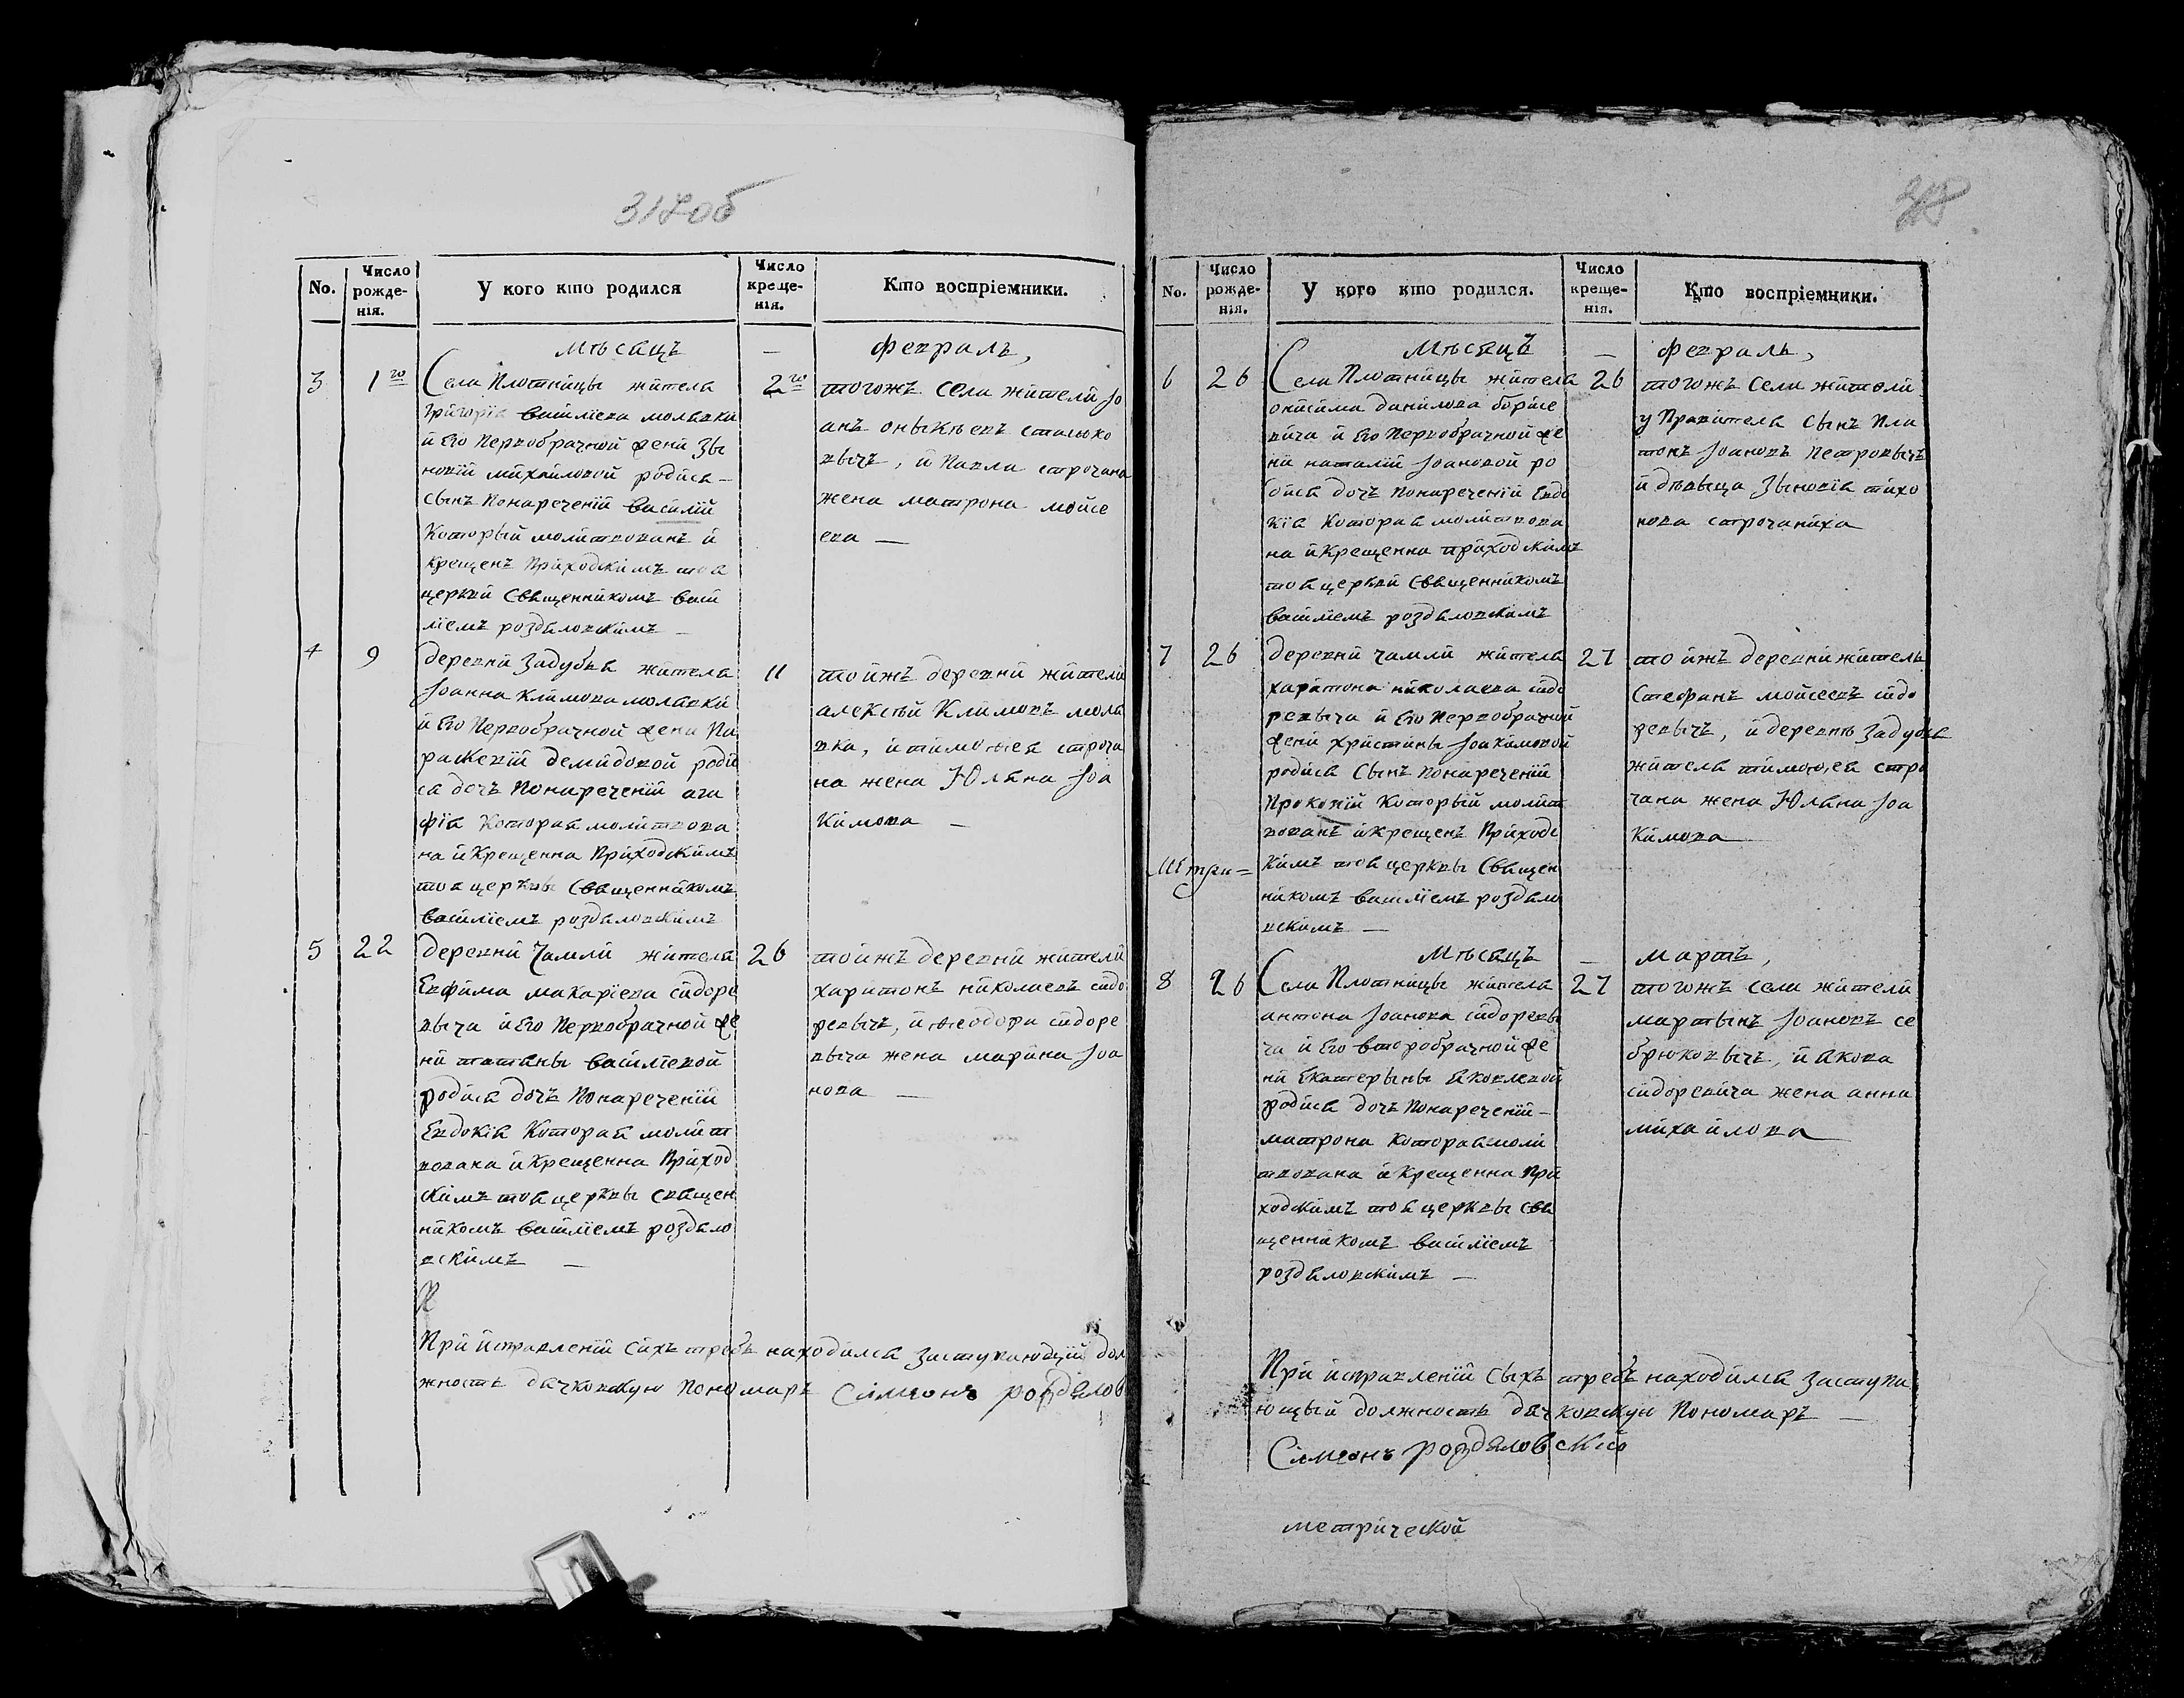 317об
No.
Число рожде-нія.
У кого кто родился
Число креще-нія.
Кто воспріемники.
Мѣсяцъ — февраль,
3 1го
Села Плотницы жителя
Григорія василіева молявки
и Его Первобрачной жени Зы
новіи михайловой родися —
сынъ Понареченіи василій
Который молитвованъ и
крещенъ Приходскимъ тоя
церкви священникомъ васи
ліемъ роздяловскимъ —
2го
тогожъ села жители Јо
анъ
кычъ, и Павла строчана
жена матрона мойсе
ева —
4 9
деревни Задубья жителя
Јоанна климова молявки
и Его Первобрачной жени Па
раскевіи демидовой роди
ся дочъ Понареченіи ага
фія Которая молитвова
на и Крещенна Приходскимъ
тоя церквы священникомъ
василіемъ роздяловскимъ
11
тоижъ деревни жители
алексѣй Климовъ моля
вка, и тимоѳея строча
на жена Юляна Јоа
кимова —
5 22
деревни Чамли жителя
Евфима макаріева сидоре
выча и Его Первобрачной же
ни татяны василіевой
родися дочъ Понареченіи
Евдокія Которая молит
вована и Крещенна Приход
скимъ тоя церквы священ
никомъ василіемъ роздяло
вскимъ —
26
тоижъ деревни жители
харитонъ николаевъ сидо
ревычъ, и ѳеодора сидоре
выча жена марина Јоа
нова —
При исправленіи сихъ требъ находился заступающій дол
жность дячковскую Пономаръ Сімеонъ роздялов
318
No.
Число рожде-нія.
У кого кто родился.
Число креще-нія.
Кто воспріемники.
Мѣсяцъ — февраль,
6 26
Села Плотницы жителя
онисима данилова борисе
вича и Его Первобрачной же
ни наталіи Јоановой ро
дися дочъ Понареченіи Евдо
кія Которая молитвова
на и Крещенна приходскимъ
тоя церкви священникомъ
василіемъ роздяловскимъ
26
тогожъ села жители
у Правителя сынъ Пла
тонъ Јоановъ Петровычъ
и дѣвыца Зыновія тихо
нова строчаниха
7 26
деревни чамли жителя
харитона николаева сидо
ревыча и Его Первобрачной
жени христины Јоакимовой
родися сынъ Понареченіи
Прокопій Который молит
вованъ и крещенъ Приходс
кимъ тоя церквы священ
никомъ василіемъ роздяло
вскимъ —
27
тоижъ деревни житель
Стефанъ мойсеевъ сидо
ревычъ, и деревнѣ Задубья
жителя тимоѳея стро
чана жена Юляна Јоа
кимова
Мѣсяцъ — мартъ,
8 26
Села Плотницы жителя
антона Јоанова сидоревы
ча и Его второбрачной же
ни Екатерыны яковлевой
родися дочъ Понареченіи —
матрона Которая моли
твована и Крещенна При
ходскимъ тоя церквы свя
щенникомъ василіемъ
роздяловскимъ —
27
тогожъ села жители
мартынъ Јоановъ се
брюковычъ, и якова
сидоревича жена анна
михайлова
При исправленіи сыхъ требъ находился заступа
ющый должность дячковскую Пономаръ —
Сімеонъ роздяловскій
метрической